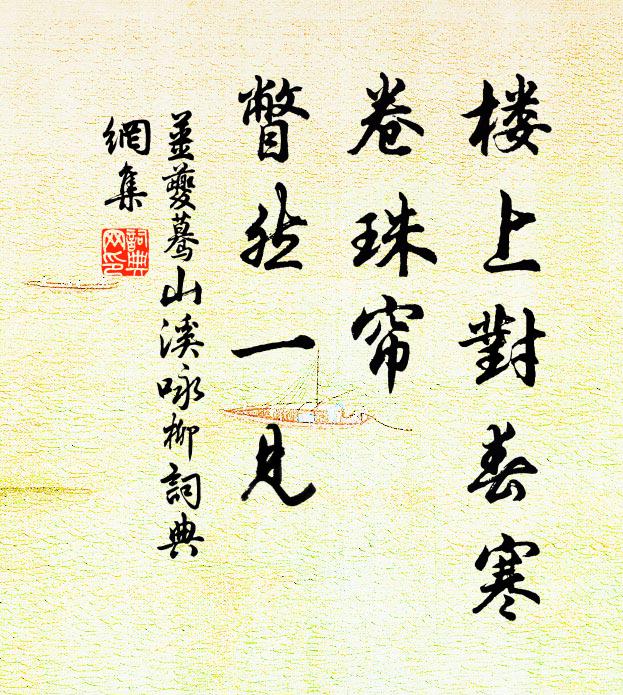 楼上對春寒
卷珠帘
瞥然一見
姜夔蓦山溪咏柳詞典
網集
詞典
网印